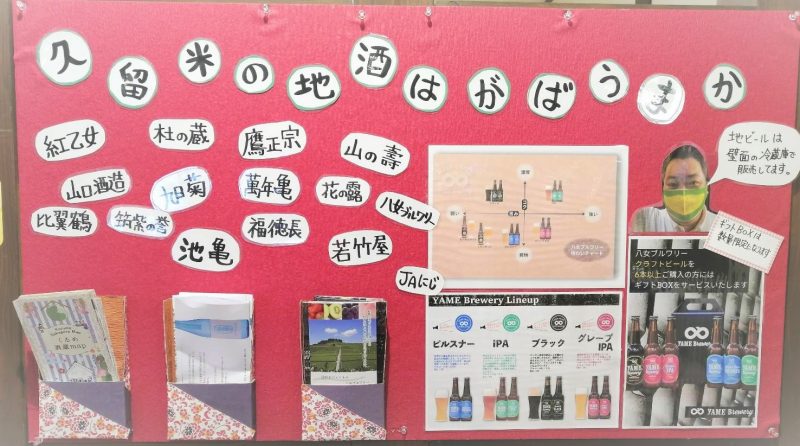 久留米の地酒はがばうまか
紅乙女
杜の蔵
鷹正宗
山の壽
山口酒造
旭菊
萬年亀
花の露
八女ブルワリー
比翼鶴
筑紫の誉
池亀
福徳長
若竹屋
JAにじ
地ビールは
壁面の冷蔵庫で
販売してます。
ギフトBOXは
数量限定となります
八女ブルワリー
クラフトビールを
6本以上ご購入の方には
ギフトBOXをサービスいたします
YAME Brewery Lineup
ピルスナー
iPA
ブラック
グレープ
IPA
くるめ
酒蔵map
YAME Brewery